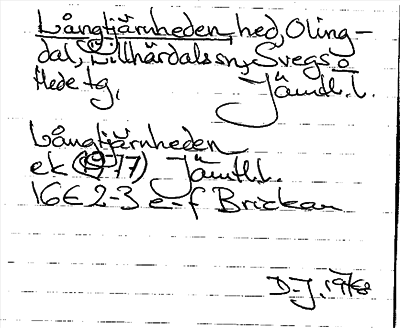 Långtjärnheden, hed, Oling-
dal, Lillhärdals sn, Svegs o
Hede tg, Jämtl. l.
Långtjärnheden
ek (1917) Jämtl. l.
16E 2-3 e-f Brickan
D-J. 1968